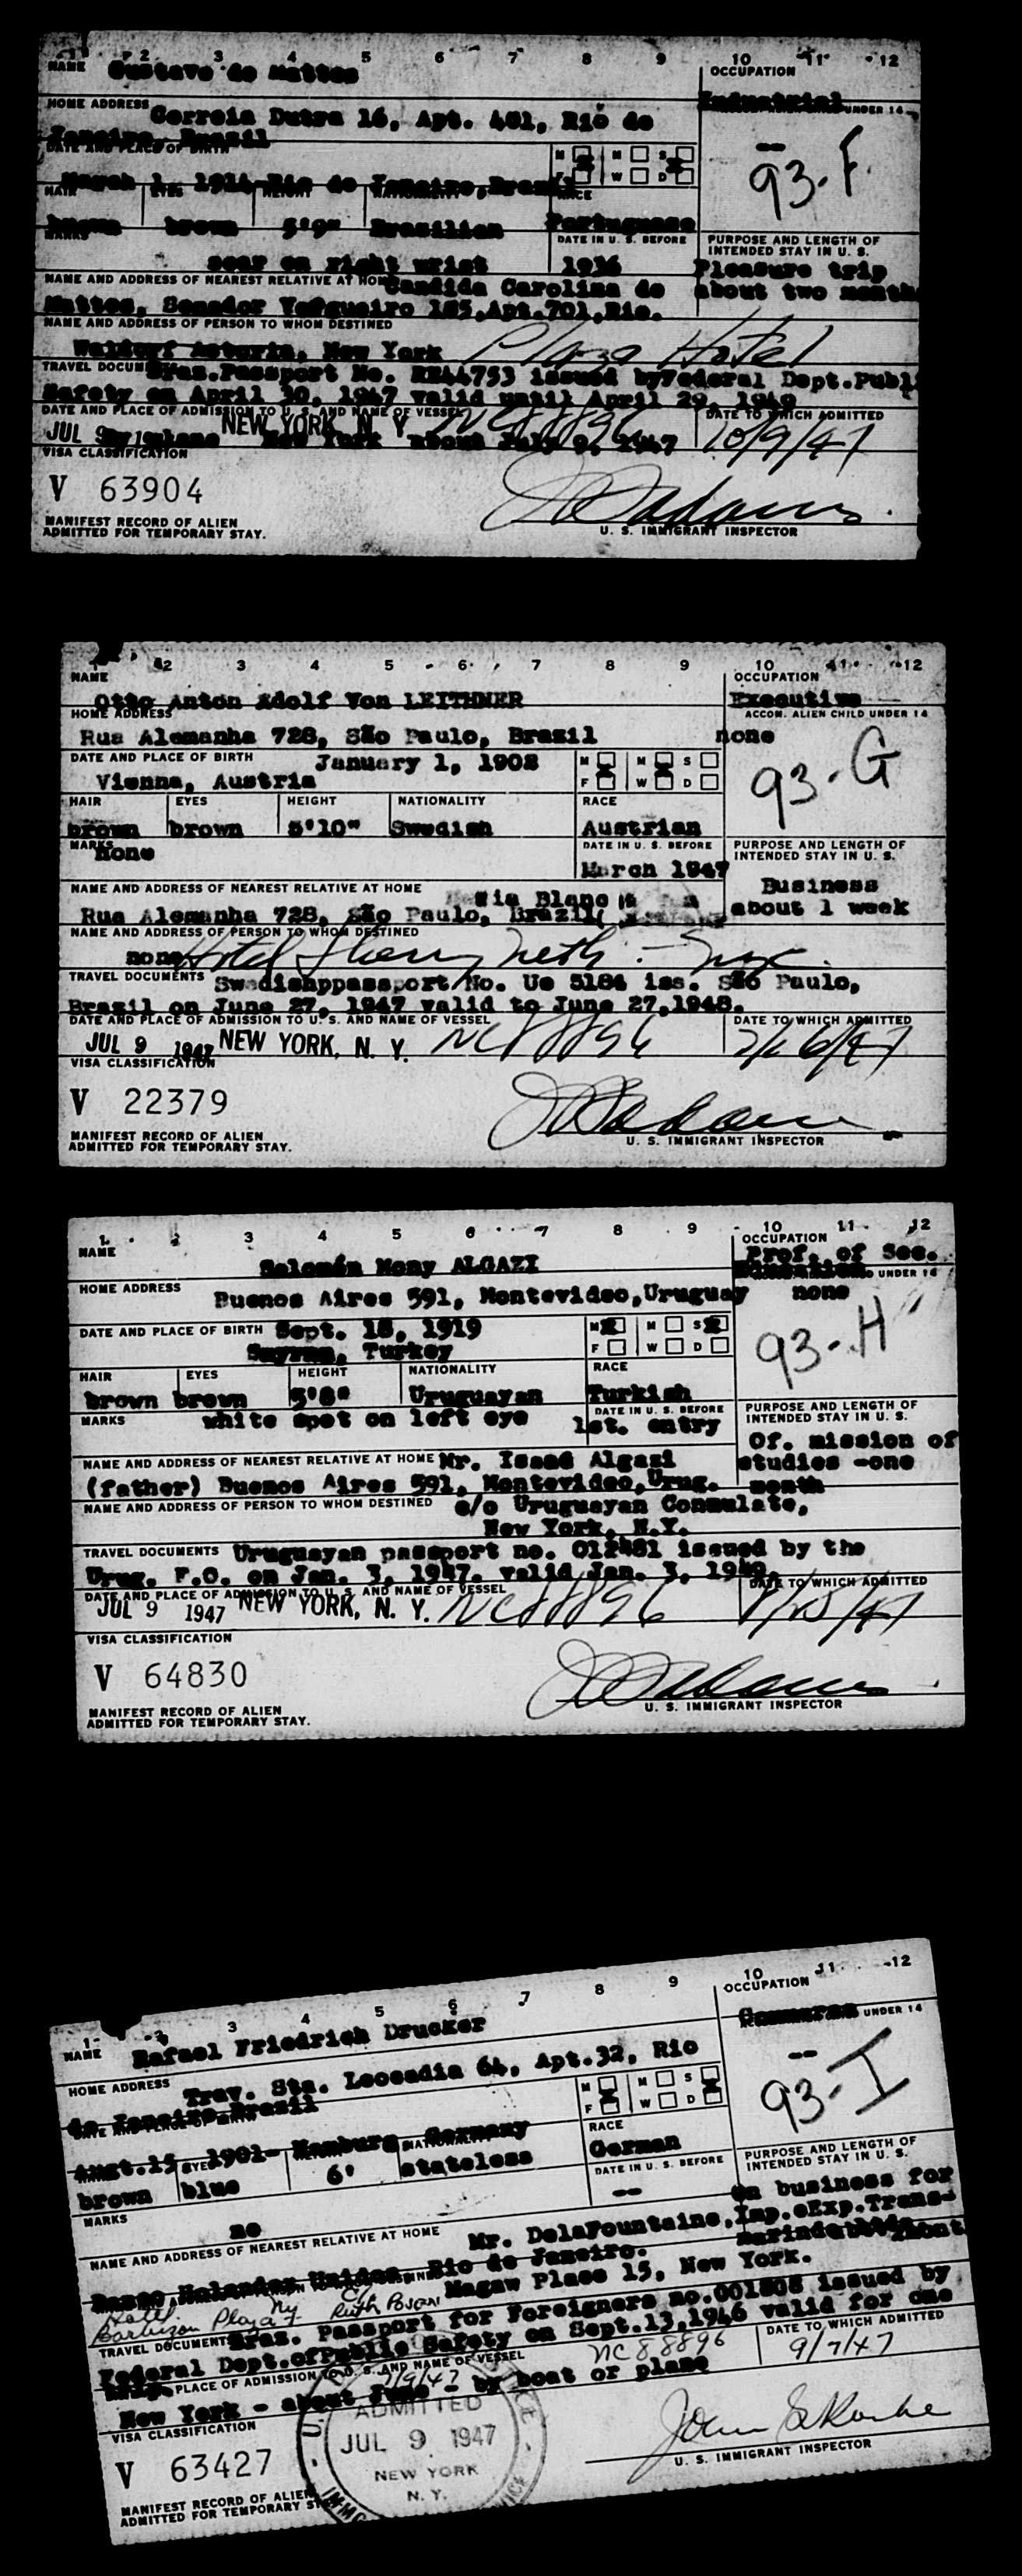 1 2 3 4 5 6 7 8 9 10 11 12
NAME Gustavo de Mattos
OCCUPATION
Industrial UNDER 14
HOME ADDRESS Correia Dutra 16, Apt. 401, Rio de
Janeiro, Brazil
DATE AND PLACE OF BIRTH
--
93-F
M M S
F W D
March 1, 1914 Rio de Janeiro, Brazil
HAIR EYES HEIGHT NATIONALITY RACE
brown brown 5'9" Brazilian Portuguese
MARKS DATE IN U. S. BEFORE
PURPOSE AND LENGTH OF
INTENDED STAY IN U. S.
scar on right wrist 1936 Pleasure trip
about two months
NAME AND ADDRESS OF NEAREST RELATIVE AT HOME Candida Carolina de
Mattos, Senador Vergueiro 185, Apt. 701, Rio.
NAME AND ADDRESS OF PERSON TO WHOM DESTINED
Waldorf Astoria, New York Plaza Hotel
TRAVEL DOCUMENTS Bras. Passport No. issued by Federal Dept. Publ
Safety on April 30, 1947 valid until April 29, 1949
DATE AND PLACE OF ADMISSION TO U. S. AND NAME OF VESSEL DATE TO WHICH ADMITTED
JUL 9 NEW YORK, N. Y. NC88896 10/9/47
By plane New York about July 9, 1947
VISA CLASSIFICATION
V 63904
MANIFEST RECORD OF ALIEN
ADMITTED FOR TEMPORARY STAY.
U. S. IMMIGRANT INSPECTOR
1 2 3 4 5 6 7 8 9 10 11 12
NAME OCCUPATION
Otto Anton Adolf Von LEITHNER Executive
HOME ADDRESS ACCOM. ALIEN CHILD UNDER 14
Rua Alemanha 728, São Paulo, Brazil none
93-G
DATE AND PLACE OF BIRTH January 1, 1908
Vienna, Austria
M M S
F W D
HAIR EYES HEIGHT NATIONALITY RACE
brown brown 5'10" Swedish Austrian
MARKS none DATE IN U. S. BEFORE
PURPOSE AND LENGTH OF
INTENDED STAY IN U. S.
March 1947
Business
about 1 week
NAME AND ADDRESS OF NEAREST RELATIVE AT HOME
Rua Alemanha 728, São Paulo, Brazil
NAME AND ADDRESS OF PERSON TO WHOM DESTINED
none Hotel Sherry Neth. - NYC.
TRAVEL DOCUMENTS Swedishppassport No. Ue 5184 iss. São Paulo,
Brazil on June 27, 1947 valid to June 27, 1948.
DATE AND PLACE OF ADMISSION TO U. S. AND NAME OF VESSEL DATE TO WHICH ADMITTED
JUL 9 1947 NEW YORK, N. Y. NC88896 7/26/47
VISA CLASSIFICATION
V 22379
MANIFEST RECORD OF ALIEN
ADMITTED FOR TEMPORARY STAY.
U. S. IMMIGRANT INSPECTOR
1 2 3 4 5 6 7 8 9 10 11 12
NAME OCCUPATION
Salomón Mony ALGAZI Prof. of Sec.
Education UNDER 14
HOME ADDRESS none
Buenos Aires 591, Montevideo, Uruguay
93-H
DATE AND PLACE OF BIRTH Sept. 18, 1919
Smyrna, Turkey
M M S
F W D
HAIR EYES HEIGHT NATIONALITY RACE
brown brown 5'8" Uruguayan Turkish
MARKS white spot on left eye DATE IN U. S. BEFORE
1st. entry
PURPOSE AND LENGTH OF
INTENDED STAY IN U. S.
Of. mission of
studies -one
month
NAME AND ADDRESS OF NEAREST RELATIVE AT HOME Mr. Isaac Algazi
(father) Buenos Aires 591, Montevideo, Urug.
NAME AND ADDRESS OF PERSON TO WHOM DESTINED c/o Uruguayan Consulate,
New York, N.Y.
TRAVEL DOCUMENTS Uruguayan passport no. 012481 issued by the
Urug. F.O. on Jan. 3, 1947. valid Jan. 3, 1949.
DATE AND PLACE OF ADMISSION TO U. S. AND NAME OF VESSEL DATE TO WHICH ADMITTED
JUL 9 1947 NEW YORK, N. Y. NC88896
VISA CLASSIFICATION
V 64830
MANIFEST RECORD OF ALIEN
ADMITTED FOR TEMPORARY STAY.
U. S. IMMIGRANT INSPECTOR
1 2 3 4 5 6 7 8 9 10 11 12
NAME Rafael Friedrich Drucker
OCCUPATION
UNDER 14
HOME ADDRESS Trav. Sta. Leocadia 64, Apt.32, Rio
de Janeiro, Brazil
--
93-I
M M S
F W D
Augt.15 1901- Hamburg - Germany
RACE
brown blue 6' stateless German
DATE IN U. S. BEFORE
--
PURPOSE AND LENGTH OF
INTENDED STAY IN U. S.
MARKS no
on business for
NAME AND ADDRESS OF NEAREST RELATIVE AT HOME Mr. DelaFountaine, Imp.&Exp.Trans-
Banco Holandez Unido, Rio de Janeiro.
Magaw Place 15, New York.
Hotel
Barbizon Plaza NY
TRAVEL DOCUMENTS Bras. Passport for Foreigners no.001808 issued by
Federal Dept.ofPublic Safety on Sept.13,1946 valid for one
PLACE OF ADMISSION TO U. S. AND NAME OF VESSEL NC88896 DATE TO WHICH ADMITTED
7/9/47 9/7/47
New York - about June - by boat or plane
VISA CLASSIFICATION
V 63427
ADMITTED
JUL 9 1947
NEW YORK
N. Y.
MANIFEST RECORD OF ALIEN
ADMITTED FOR TEMPORARY
U. S. IMMIGRANT INSPECTOR